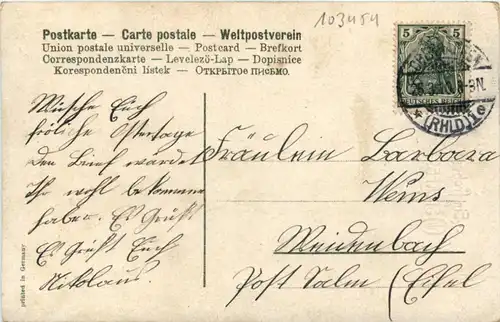 103454
Postkarte — Carte postale — Weltpostverein
Union postale universelle — Postcard — Brefkort
Correspondenzkarte — Levelezö-Lap — Dopisnice
Korespondenční listek — ОТКРЫТОЕ ПИСЬМО.
5 5
DEUTSCHES REICH
8-9N.
(RHLD.) 1e
Wüsche Euch
fröliche Ostertage
Den Brief werdet
Ihr wohl bekommen
haben. Es Grüßt
Es Grüßt Euch
Nikolaus.
Fräulein Barbara
Weins
Weidenbach
Post Salm (Eifel
printed in Germany